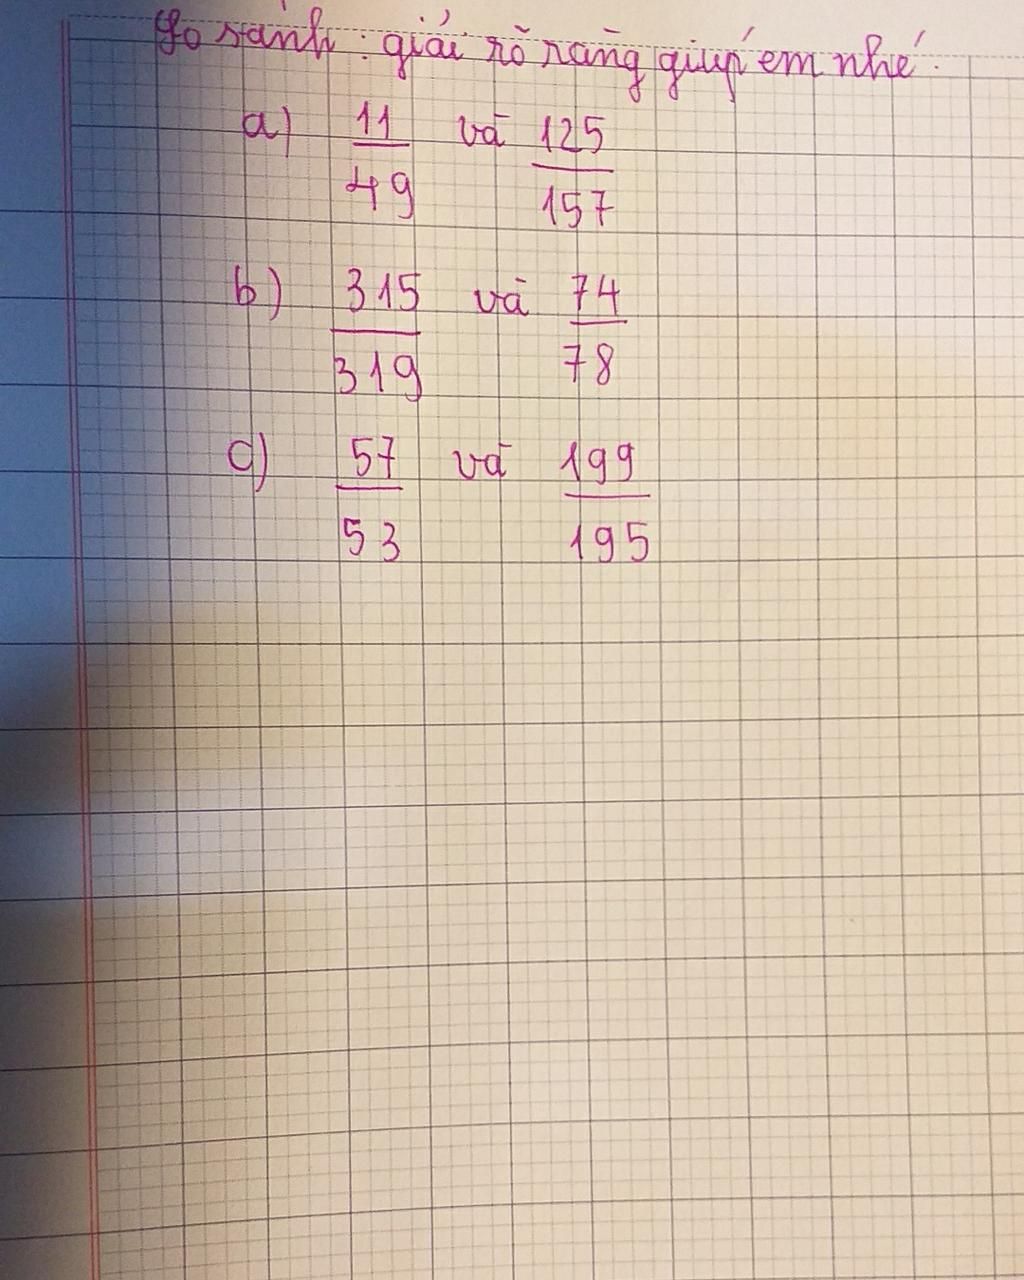 So sánh : giải rõ ràng giúp em nhé.
a) 11/49 và 125/157
b) 315/319 và 74/78
c) 57/53 và 199/195